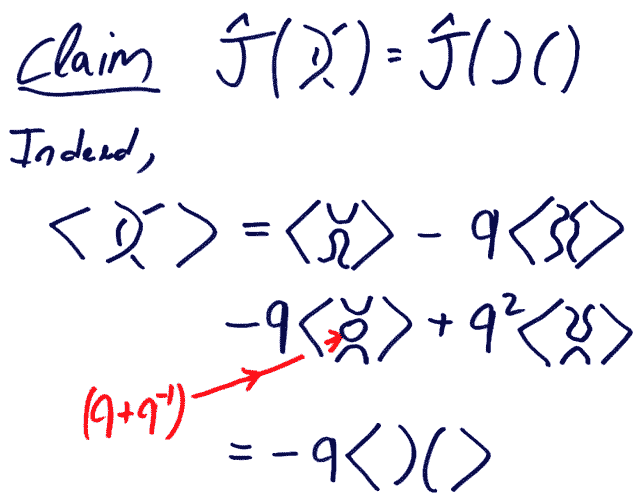 Claim Ĵ( ) = Ĵ( )( )
Indeed,
< > = < > - q < >
- q < > + q² < >
(q+q⁻¹)
= - q < )( >